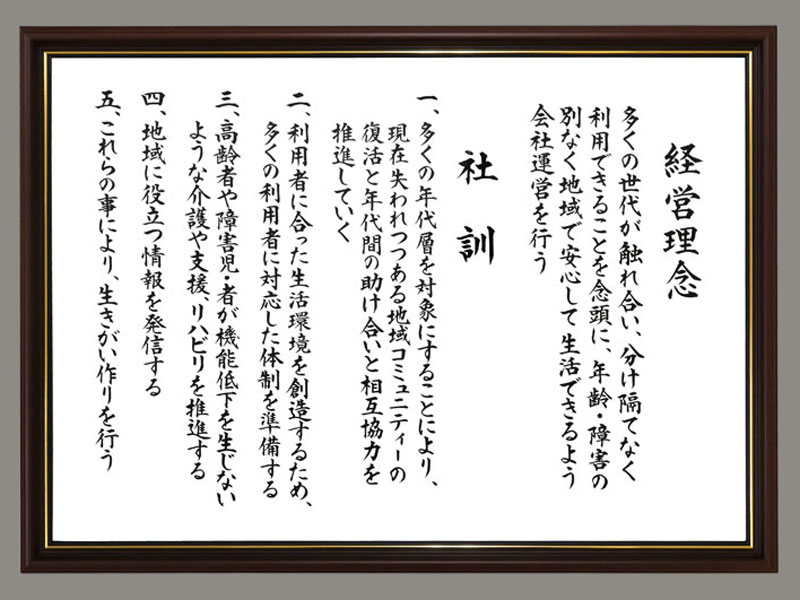 経営理念
多くの世代が触れ合い、分け隔てなく
利用できることを念頭に、年齢・障害の
別なく地域で安心して生活できるよう
会社運営を行う
社訓
一、多くの年代層を対象にすることにより、
現在失われつつある地域コミュニティーの
復活と年代間の助け合いと相互協力を
推進していく
二、利用者に合った生活環境を創造するため、
多くの利用者に対応した体制を準備する
三、高齢者や障害児・者が機能低下を生じない
ような介護や支援、リハビリを推進する
四、地域に役立つ情報を発信する
五、これらの事により、生きがい作りを行う